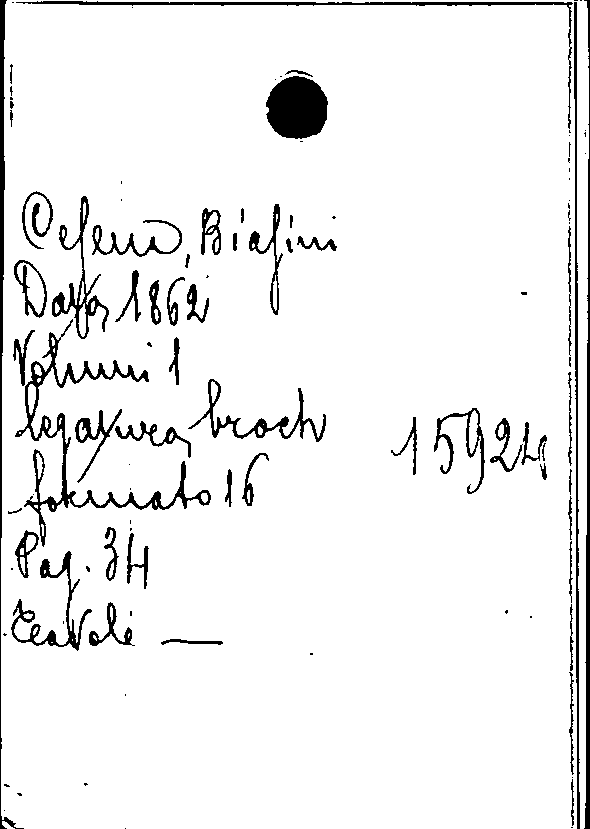 Cesena, Biasini
Data, 1862
Volumi 1
legatura, broch
formato 16
15924
Pag. 34
Tavole —